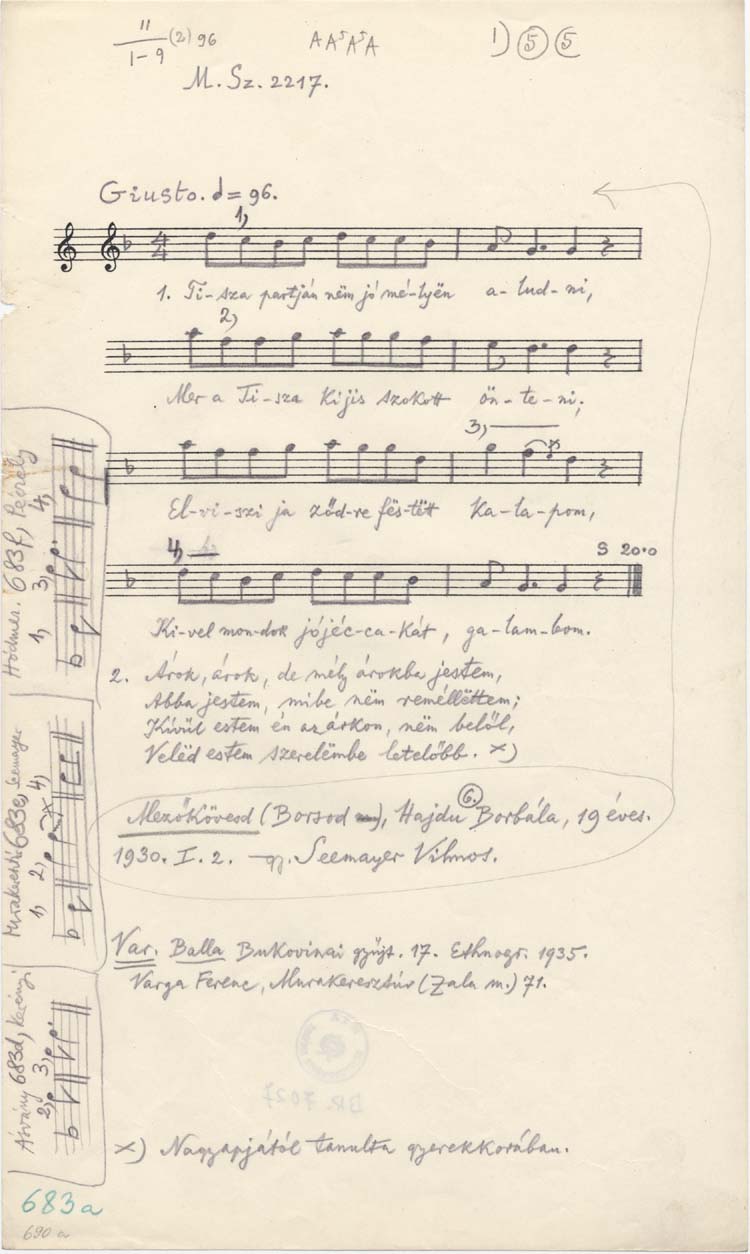 11
1-9 (2) 96
A A⁵ A⁵ A
1) 5 5
M. Sz. 2217.
Giusto. = 96.
1)
4
4
1. Ti-sza partján nëm jó mé-lyën a-lud-ni,
2)
Mer a Ti-sza kijis szokott ön-te-ni;
3)
El-vi-szi ja ződ-re fës-tëtt ka-la-pom,
4)
S 20.0
Ki-vel mon-dok jójéc-ca-kát, ga-lam-bom.
2. Árok, árok, de mély árokba jestem,
Abba jestem, mibe nëm reméllëttem;
Kívül estem én az árkon, nëm belől,
Velëd estem szerelëmbe letelőbb. ×)
Mezőkövesd (Borsod), Hajdu Borbála, 19 éves.
6.
1930. I. 2. Seemayer Vilmos.
Var. Balla Bukovinai gyűjt. 17. Ethnogr. 1935.
Varga Ferenc, Murakeresztúr (Zala m.) 71.
BR. 7027
×) Nagyapjától tanulta gyerekkorában.
Hódmez. 683f, Péczely
1, 3, 4,
683e, Seemayer
1, 2, 4,
683d, Kerényi
2, 3,
683a
690 a